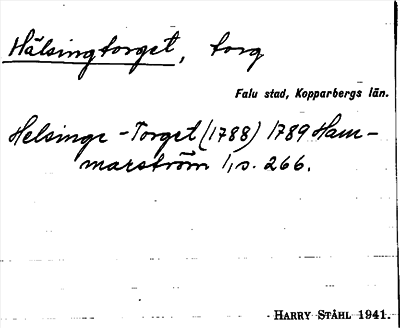 Hälsingtorget, torg
Falu stad, Kopparbergs län.
Helsinge-Torget (1788) 1789 Ham-
marström 1, s. 266.
HARRY STÅHL 1941.